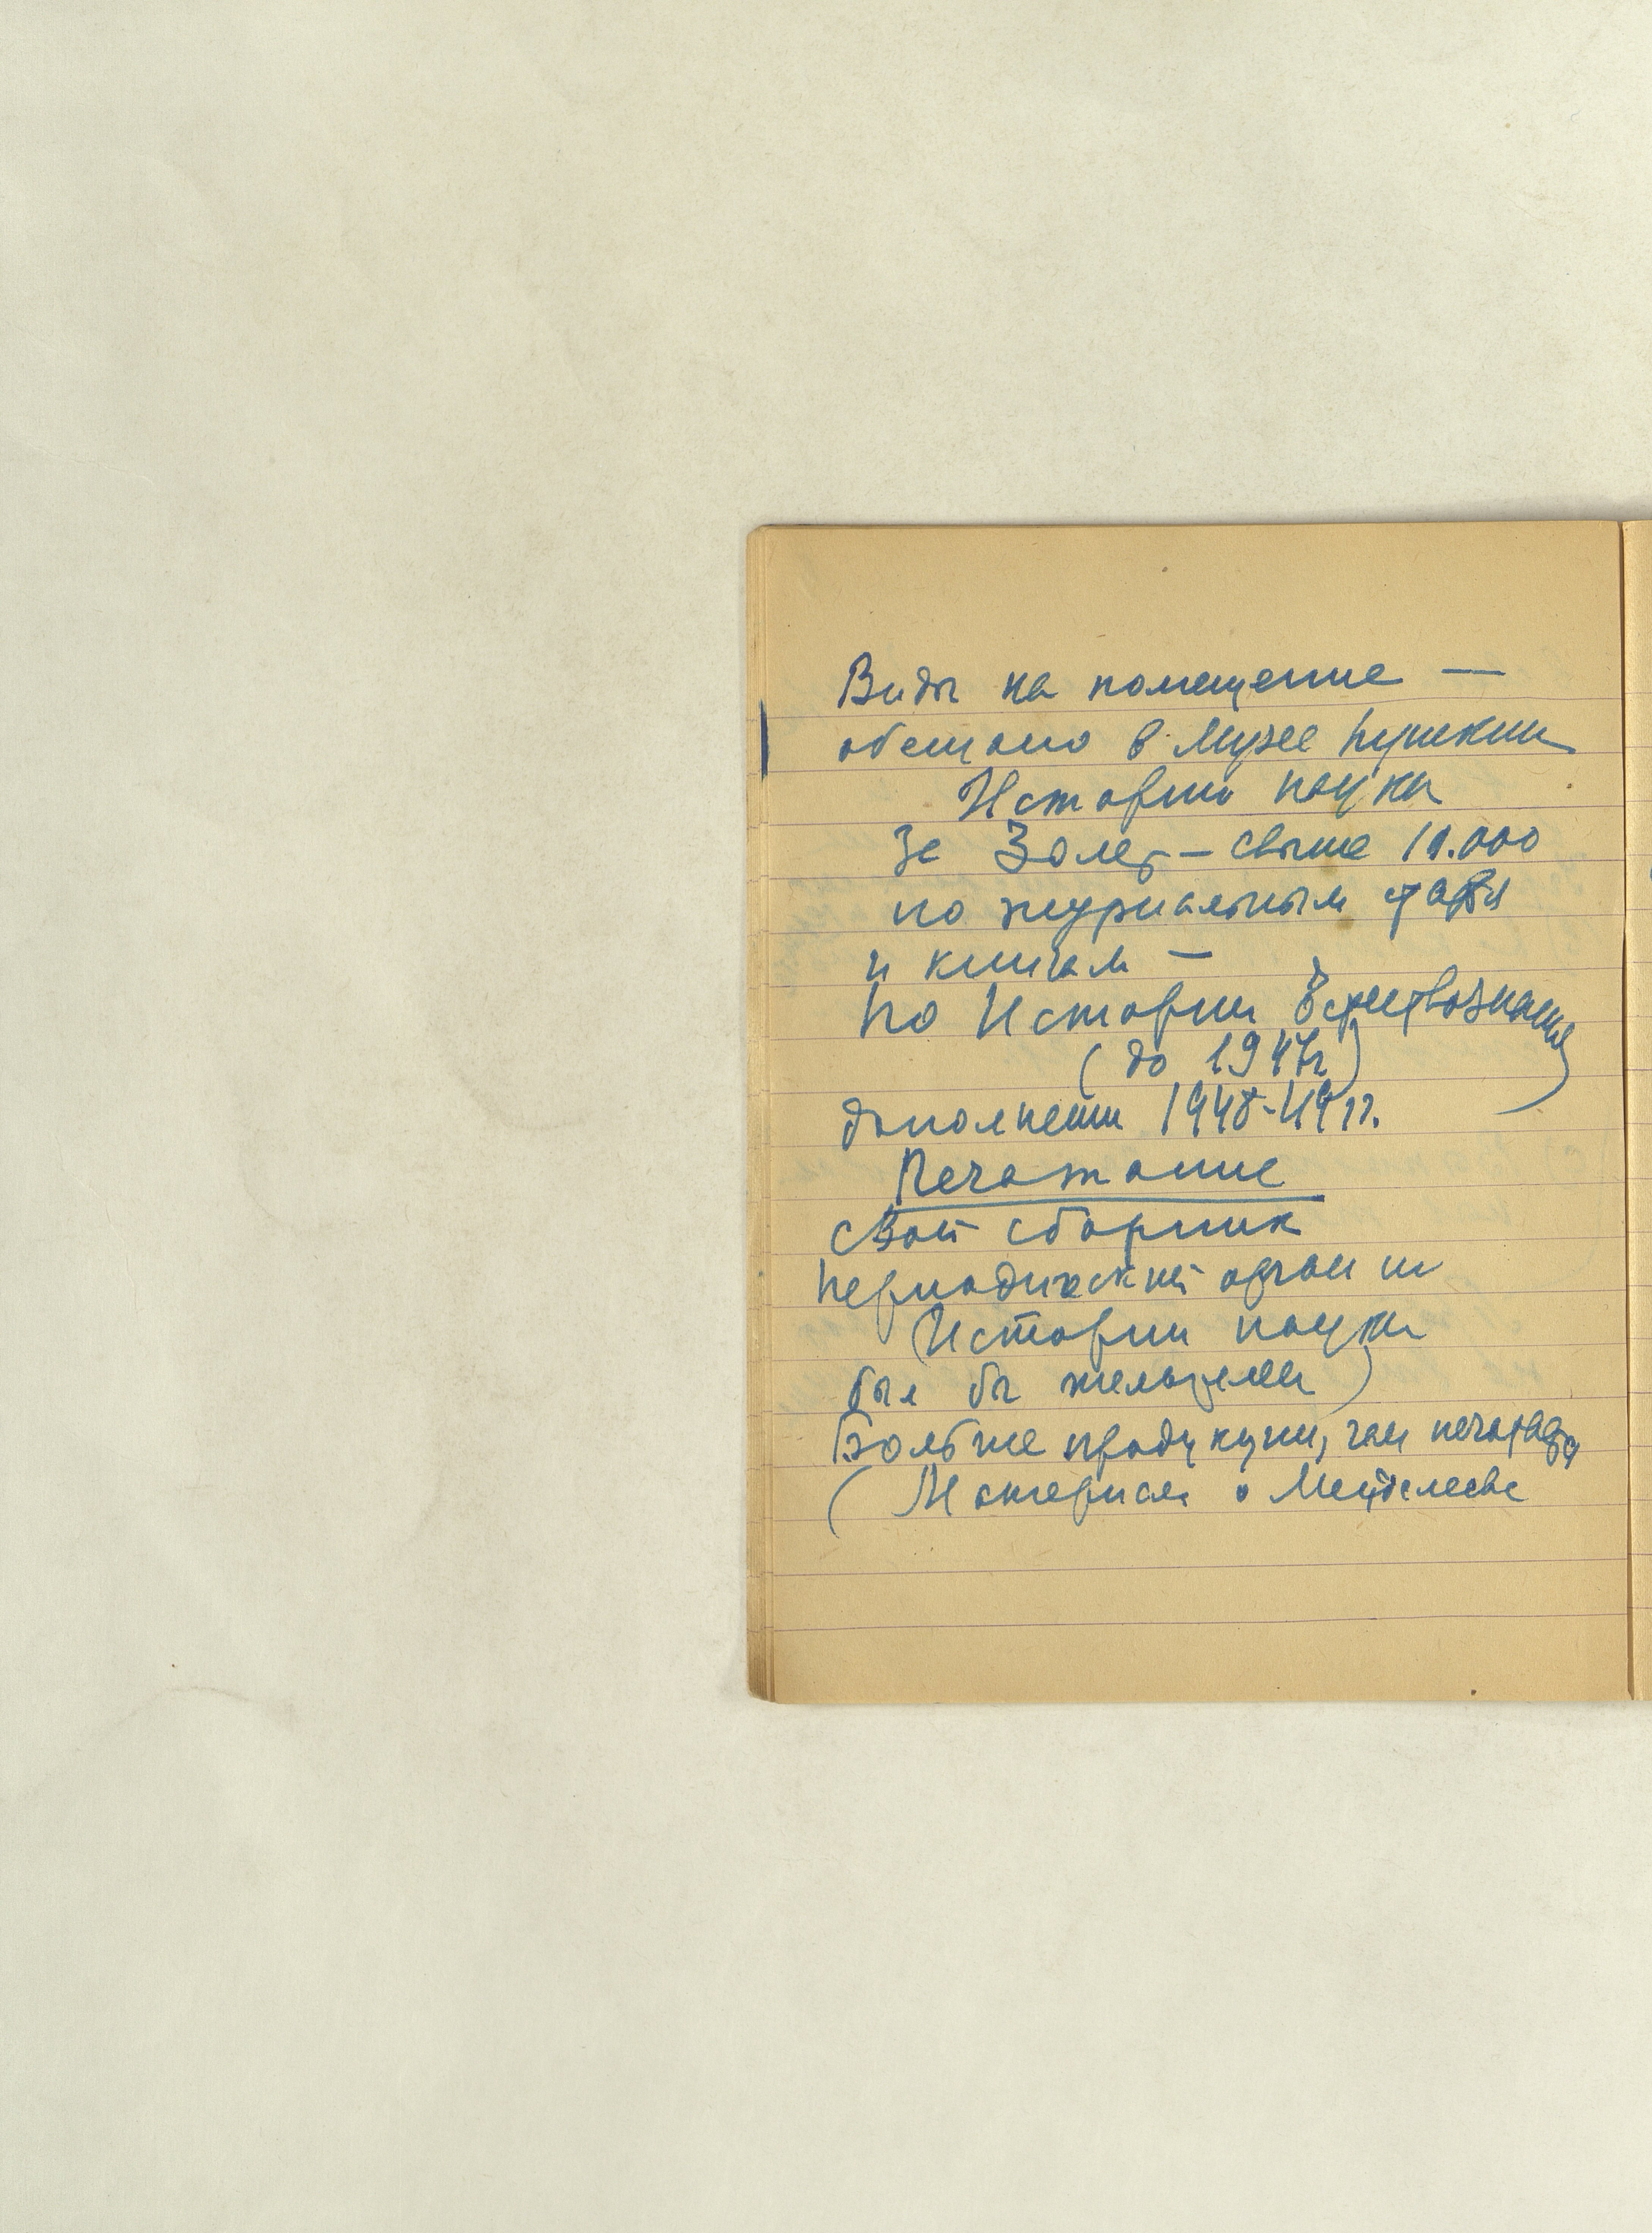 Виды на помещение —
обещано в Музее Пушкина
Истории науки
За 30 лет — свыше 10.000
по журнальным
и книгам —
По Истории Естествознания
(до 1947 г)
дополнении 1948-49 гг.
Печатание
Свой сборник
Периодический орган по
(Истории науки
был бы желателен)
Больше продукции, чем
(Материал о Менделееве